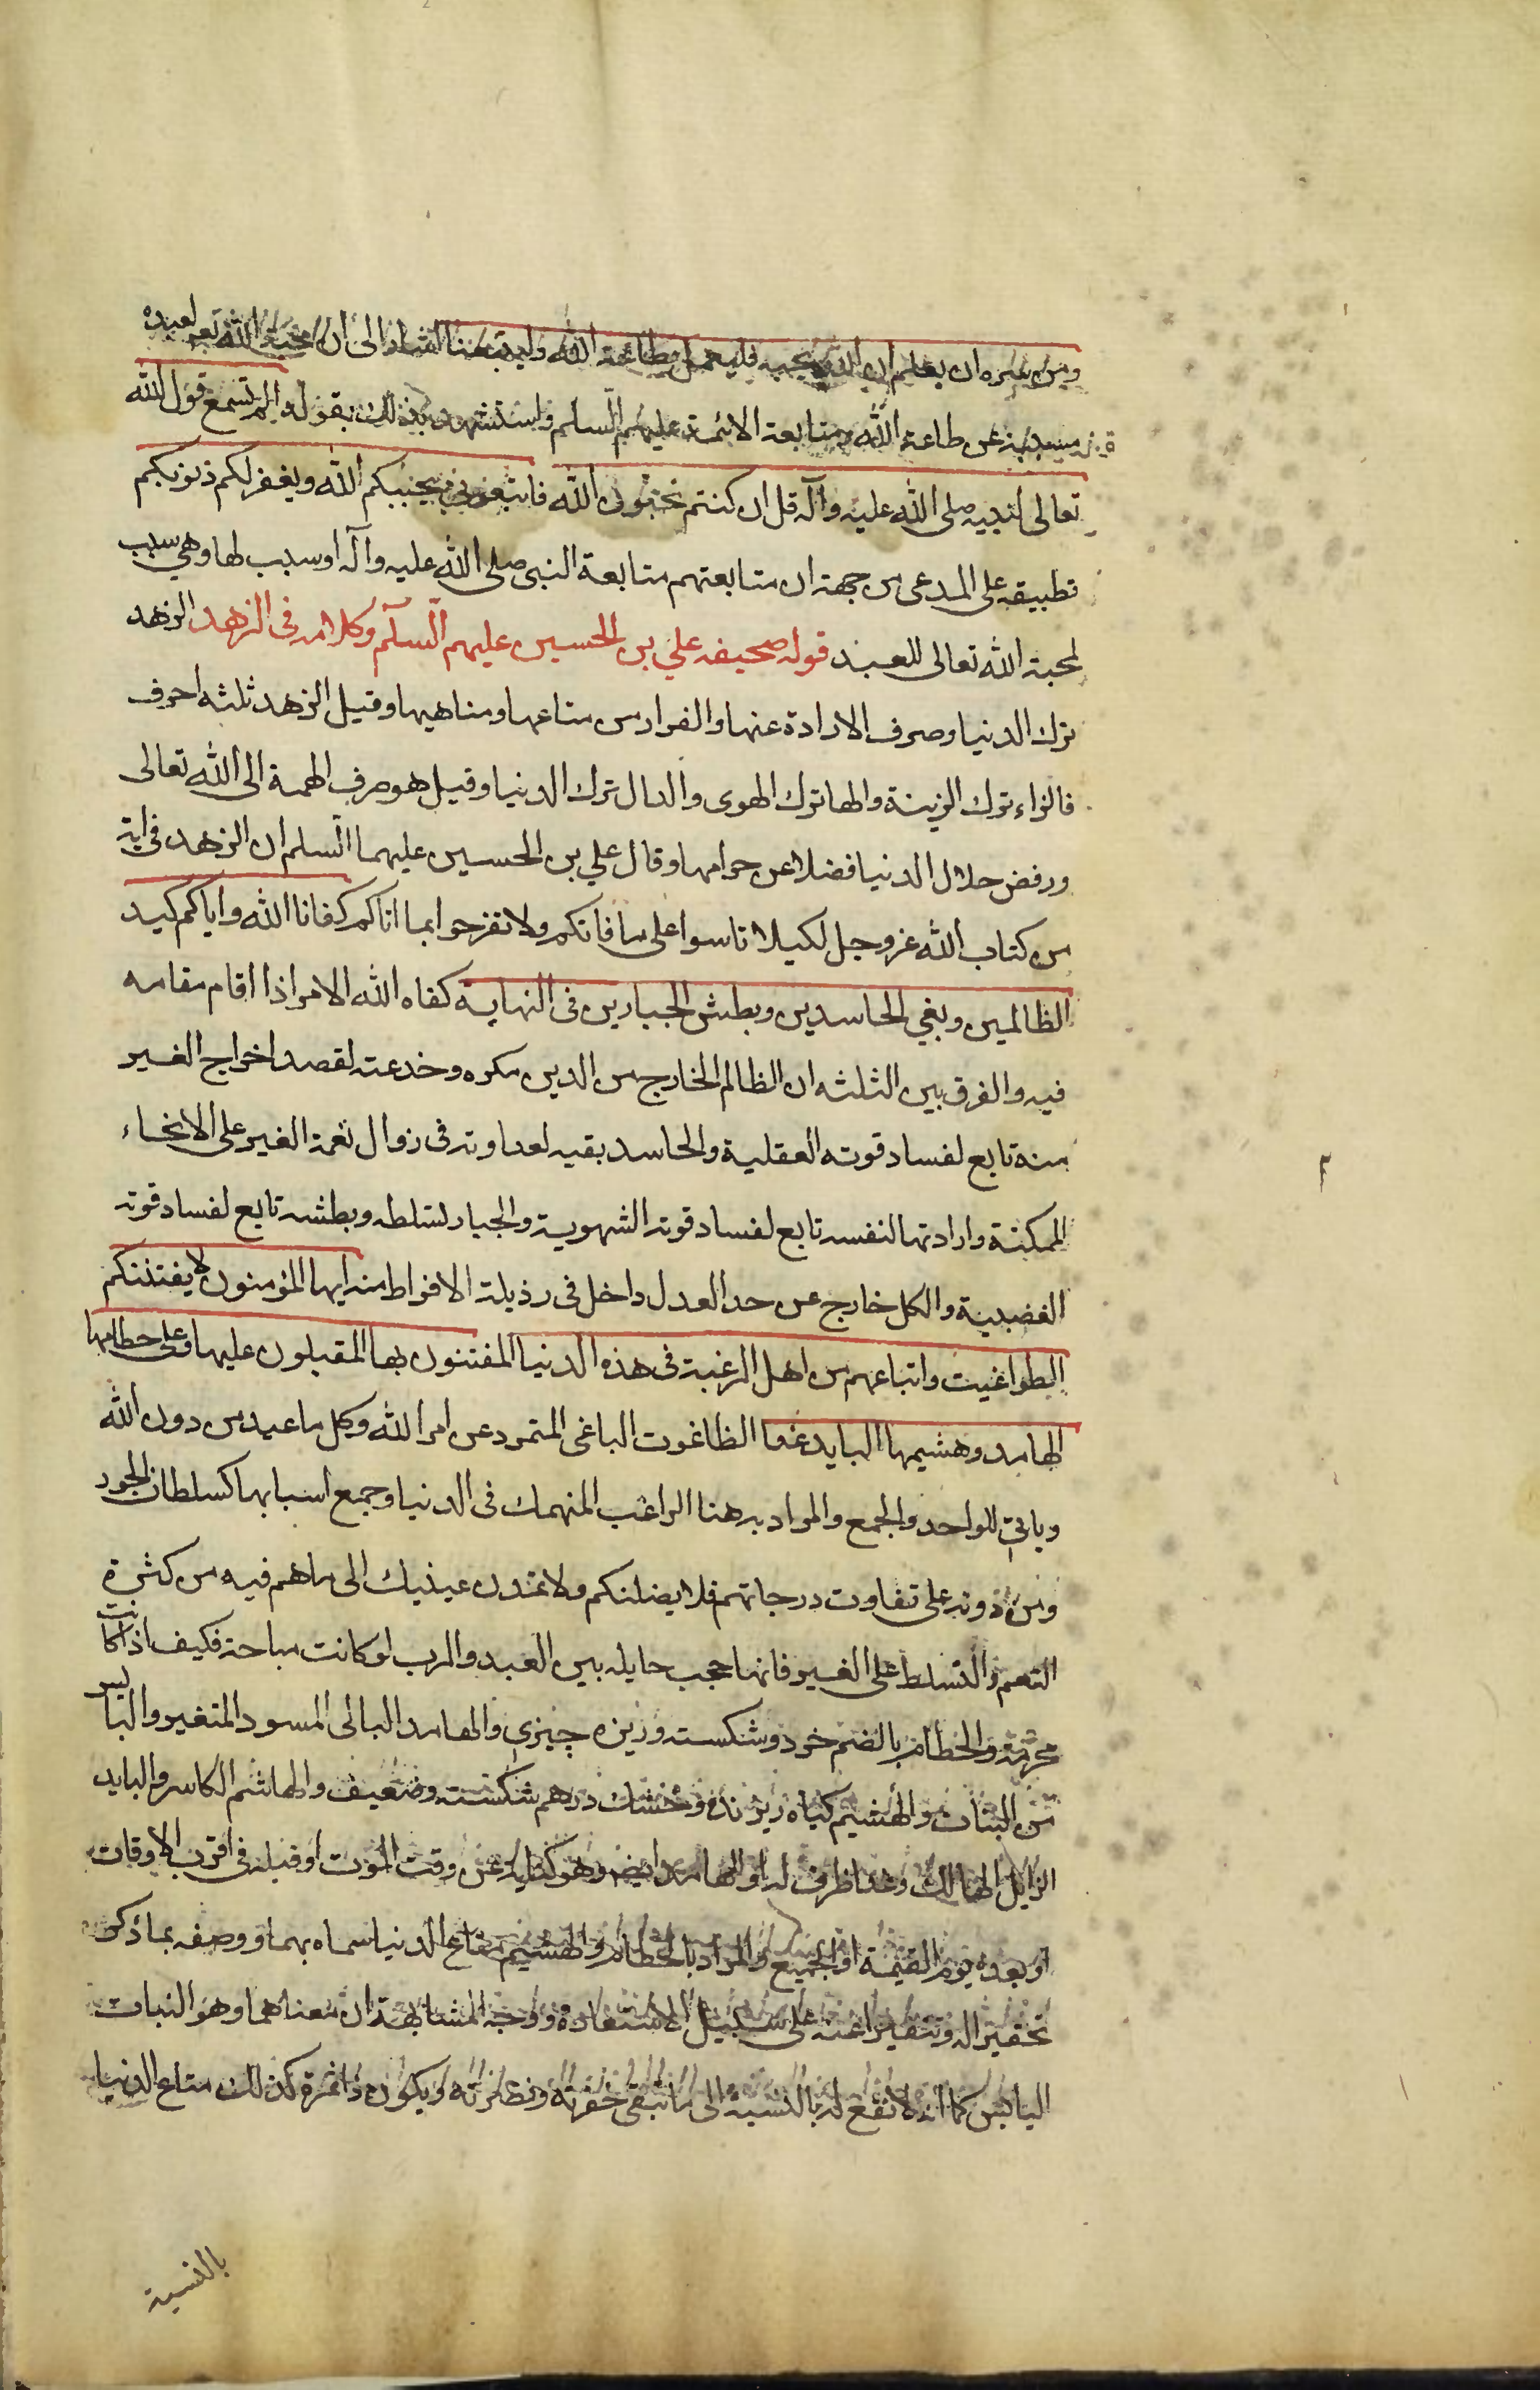 ومن سره ان يعلم ان الله يحبه فليعمل بطاعة الله وليتبعنا اشار الى ان محبة الله تعه لعبده
مسببة عن طاعة الله ومتابعة الائمة عليهم السلم واستشهد لذلك بقوله الم تسمع قول الله
تعالى لنبيه صلى الله عليه وآله قل ان كنتم تحبون الله فاتبعوني يحببكم الله ويغفر لكم ذنوبكم
تطبيقه على المدعى من جهة ان متابعتهم متابعة النبي صلى الله عليه وآله او سبب لها وهي سبب
لمحبة الله تعالى للعبد قوله صحيفه علي بن الحسين عليهم السلم وكلامه فى الزهد الزهد
ترك الدنيا وصرف الارادة عنها والفرار من متاعها ومناهيها وقيل الزهد ثلثه احرف
فالزاء ترك الزينة والها ترك الهوى والدال ترك الدنيا وقيل هو صرف الهمة الى الله تعالى
ورفض حلال الدنيا فضلا عن حرامها وقال علي بن الحسين عليهما السلم ان الزهد فى اية
من كتاب الله عز وجل لكيلا تاسوا على ما فاتكم ولا تفرحوا بما اتاكم كفانا الله واياكم كيد
الظالمين وبغي الحاسدين وبطش الجبارين فى النهاية كفاه الله الامر اذا اقام مقامه
فيه والفرق بين الثلثه ان الظالم الخارج من الدين مكره وخدعته لقصد اخراج الغير
منه تابع لفساد قوته العقلية والحاسد بقيه لعداوته فى زوال نعمة الغير على الانحاء
الممكنة وارادتها لنفسه تابع لفساد قوته الشهوية والجبار لتسلطه وبطشه تابع لفساد قوته
الغضبية والكل خارج عن حد العدل داخل فى رذيلة الافراط منه ايها المؤمنون لا يفتننكم
الطواغيت واتباعهم من اهل الرغبة فى هذه الدنيا المفتنون بها المقبلون عليها وعلى حطامها
الهامد وهشيمها البايد غدا الطاغوت الباغى المتمرد عن امر الله وكل ما عبد من دون الله
وياتي للواحد والجمع والمراد به هنا الراغب المنهمك فى الدنيا وجمع اسبابها كسلطان الجور
ومن دونه على تفاوت درجاتهم فلا يضلنكم ولا تمدن عينيك الى ما هم فيه من كثرة
التنعم والتسلط على الغير فانها حجب حايله بين العبد والرب لو كانت مباحة فكيف اذا كانت
محرمة والحطام بالضم خرد وشكسته وريزه چيزي والهامد البالى المسود المتغير واليابس
من النبات والهشيم گياه ريزنده وخشك درهم شكسته وضعيف والهاشم الكاسر والبايد
الزايل الهالك وغدا ظرف له او للهامد ايضم وهو كناية عن وقت الموت او قبله فى اقرب الاوقات
او بعده يوم القيمة او الجميع والمراد بالحطام والهشيم متاع الدنيا سماه بهما ووصفه بما ذكر
تحقيرا له وتنفيرا عنه على سبيل الاستعارة ووجه المشابهة ان معناهما وهو النبات
اليابس كما انه لا نفع له بالنسبة الى ما تبقى خضرته ونضارته ويكون ذا ثمرة كذلك متاع الدنيا
بالنسبة